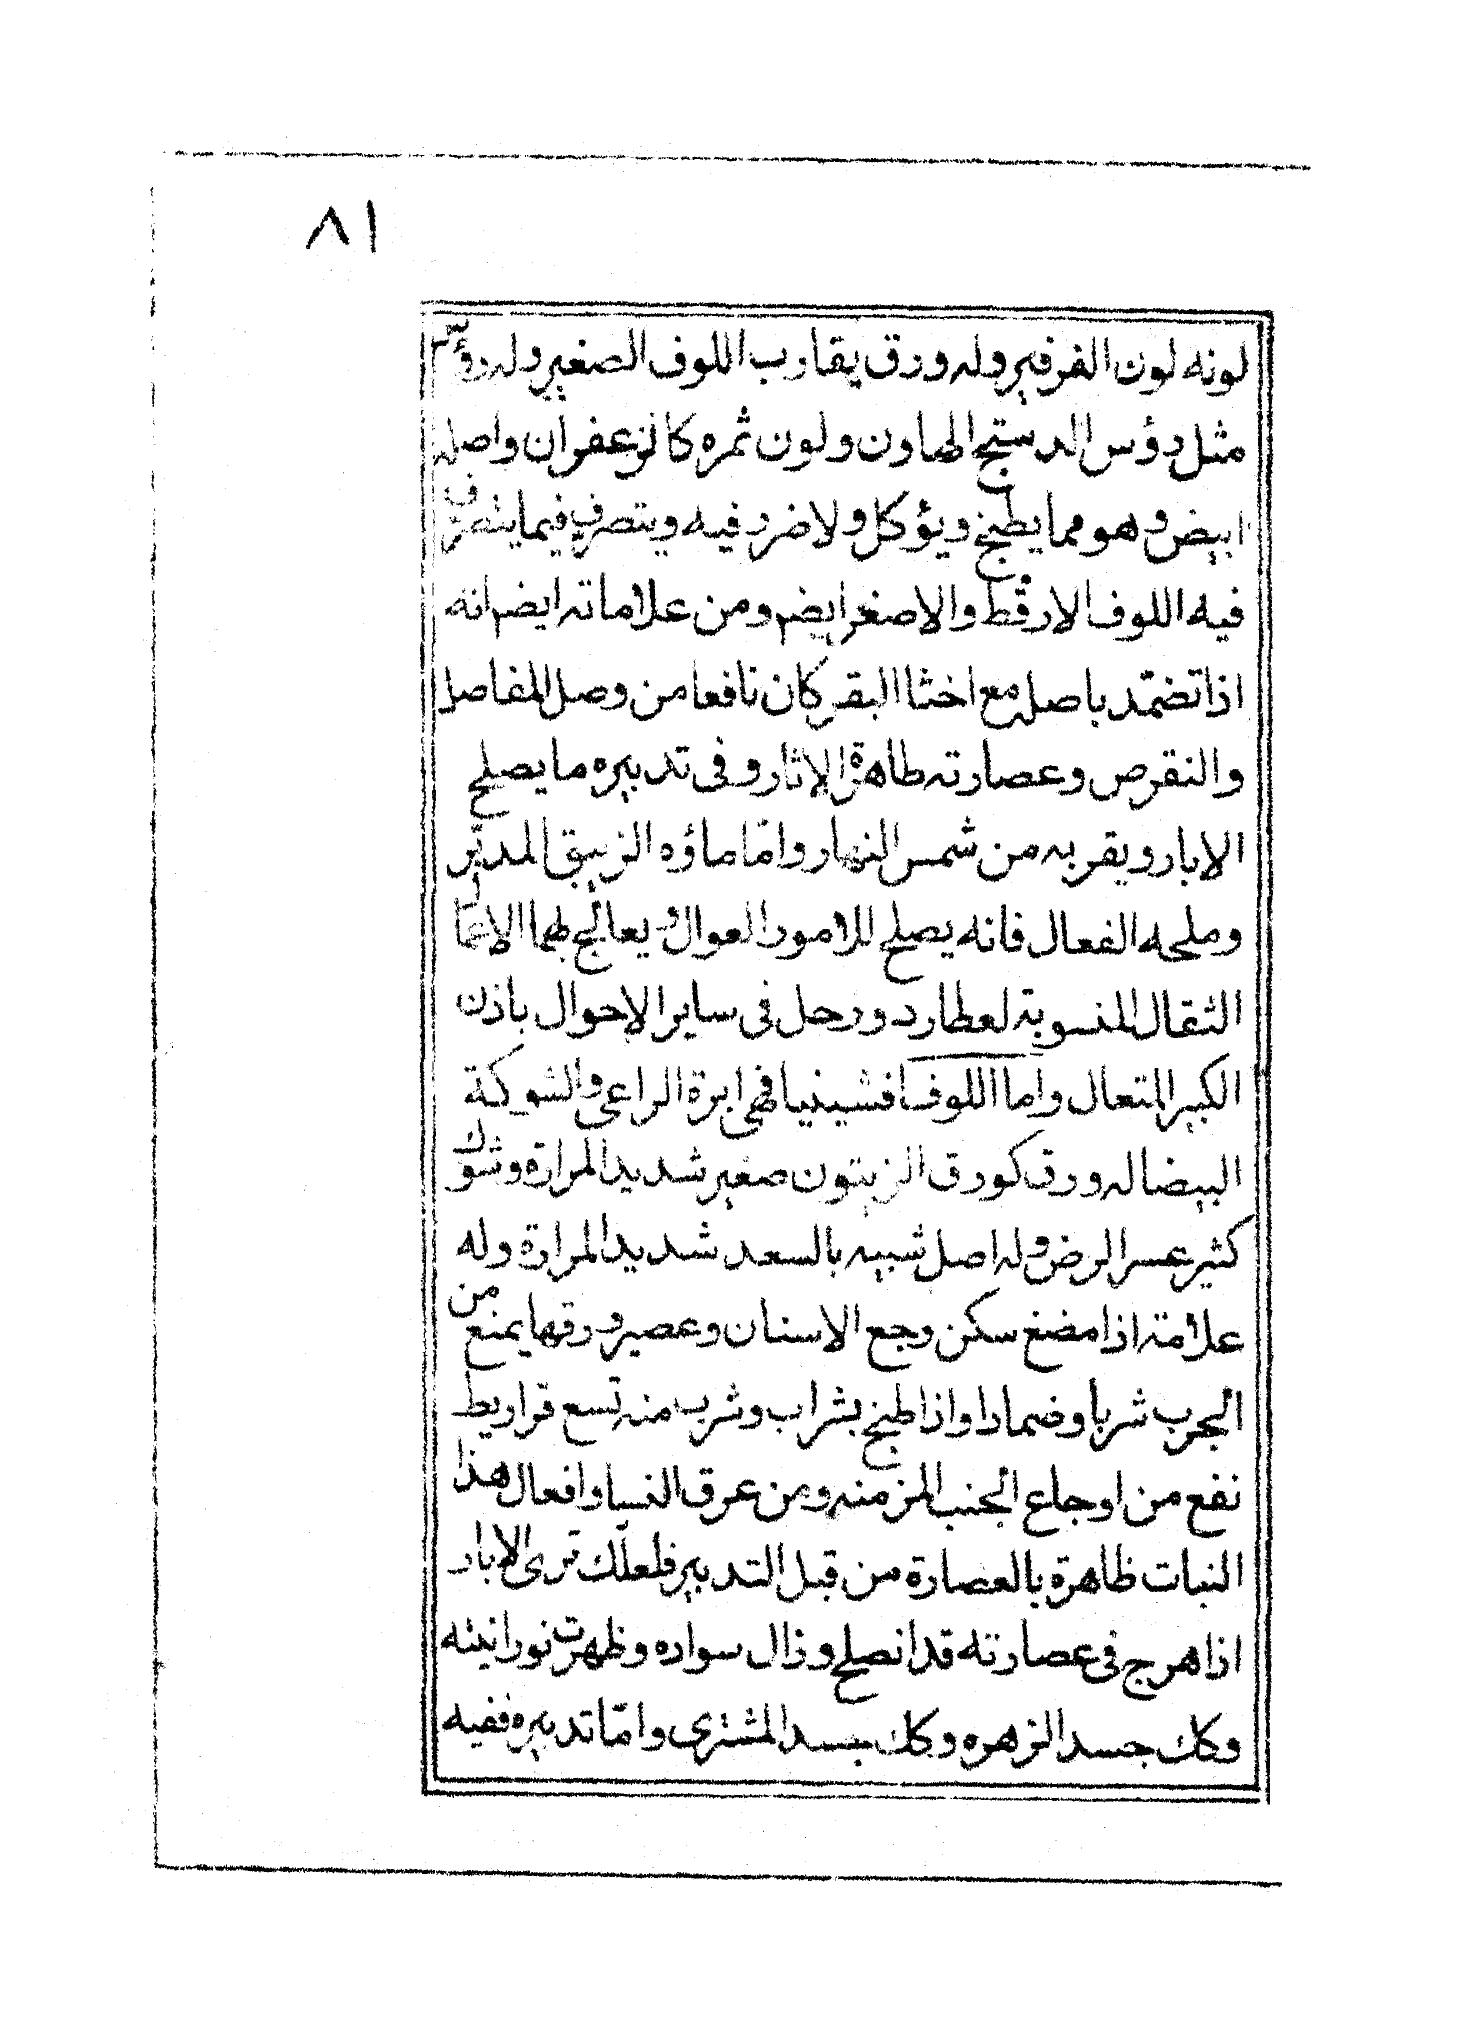 ٨١
لونه لون الفرفير وله ورق يقارب اللوف الصغير وله رؤس
مثل دؤس الدستج الهاون ولون ثمره كالزعفران واصله
ابيض وهو مما يطبخ ويؤكل ولا ضرر فيه ويتصرف فيما يتصرف
فيه اللوف الارقط والاصغر ايضم ومن علاماته ايضم انه
اذا تضمّد باصله مع اخثا البقر كان نافعا من وصل المفاصل
والنقرص وعصارته طاهرة الاثار وفى تدبيره ما يصلح
الابار ويقربه من شمس النهار وامّا ماؤه الزيبق المدبّر
وملحه الفعال فانه يصلح للامور العوال ويعالج بهما الاعمال
الثقال المنسوبة لعطارد ورحل فى ساير الاحوال باذن
الكبير المتعال واما اللوفسافشينيا فهى ابرة الراعى والشوكة
البيضا له ورق كورق الزيتون صغير شديد المرارة وشوك
كثير عسر الرض وله اصل شبيه بالسعد شديد المرارة وله
علامته اذا مضغ سكن وجع الاسنان وعصير ورقها يمنع من
الجرب شربا وضمادا واذا طبخ بشراب وشرب منه تسع قراريط
نفع من اوجاع الجنب المزمنه ومن عرق النسا وافعال هذا
النبات ظاهرة بالعصارة من قبل التدبير فلعلّك ترى الابار
اذا هرج فى عصارته قد انصلح وزال سواده وظهرت نورانيته
وكك جسد الزهره وكك جسد المشترى وامّا تدبيره ففيه